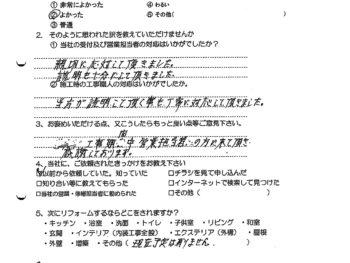 ① 非常によかった ④ わるい
②よかった ⑤ その他( )
③ 普通
2. そのように思われた訳を教えていただけませんか
① 当社の受付及び営業担当者の対応はいかがでしたか?
親切に対応して頂きました。
説明も十分にして頂きました。
② 施工時の工事職人の対応はいかがでしたか。
して頂く事も丁寧に対応して頂きました。
3、お褒めいただける点、又こうしたらもっと良い点等ご意見下さい。
工事期間中営業担当者の方に来て頂き
感謝しております。
4、当社に、ご依頼されたきっかけをお教え下さい
以前から依頼していた。知っていた □チラシを見て申し込んだ
□知り合い等に教えてもらった □インターネットで検索して見つけた
□当社の営業・修繕担当者に勧められた □その他( )
5、次にリフォームするならどこをされますか?
・キッチン ・浴室 ・洗面 ・トイレ ・子供室 ・リビング ・和室
・玄関 ・インテリア(内装工事全般) ・エクステリア(外構) ・屋根
・外壁 ・増築 ・その他( 現在予定は有りません。 )